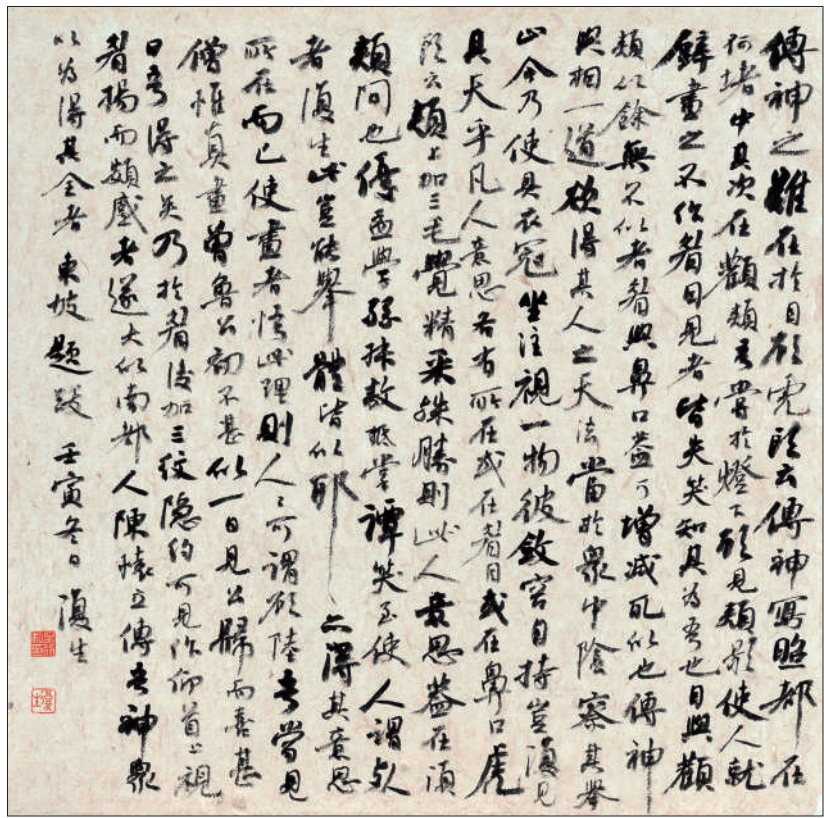 傳神之難在於目顧虎頭云傳神寫照都在
阿堵中其次在顴頰吾嘗於燈下顧見頰影使人就
壁畫之不作眉目見者皆失笑知其為吾也目與顴
頰似餘無不似者眉與鼻口蓋可增減取似也傳神
與相一道欲得其人之天法當於眾中陰察其舉
止今乃使具衣冠坐注視一物彼斂容自持豈復見
其天乎凡人意思各有所在或在眉目或在鼻口虎
頭云頰上加三毛覺精采殊勝則此人意思蓋在須
頰間也優孟學孫叔敖抵掌譚笑至使人謂死
者復生此豈能舉體皆似耶亦得其意思
所在而已使畫者悟此理則人人可謂顧陸吾嘗見
僧惟真畫曾魯公初不甚似一日見公歸而喜甚
曰吾得之矣乃於眉後加三紋隱約可見作仰首上視
眉揚而頞蹙者遂大似南都人陳懷立傳吾神眾
以為得其全者 東坡題跋 壬寅冬日 復生